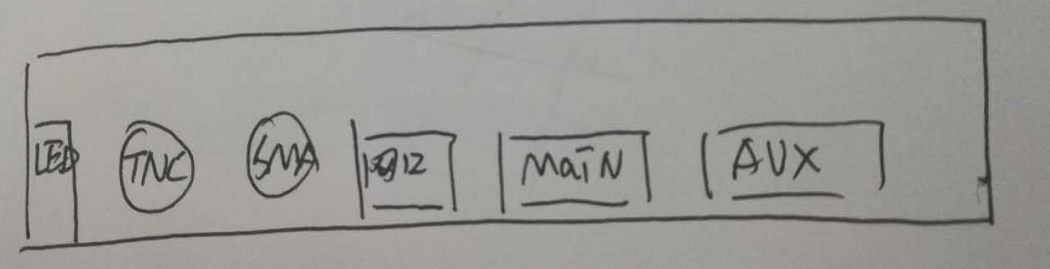 LED TNC SMA MaIN AUX